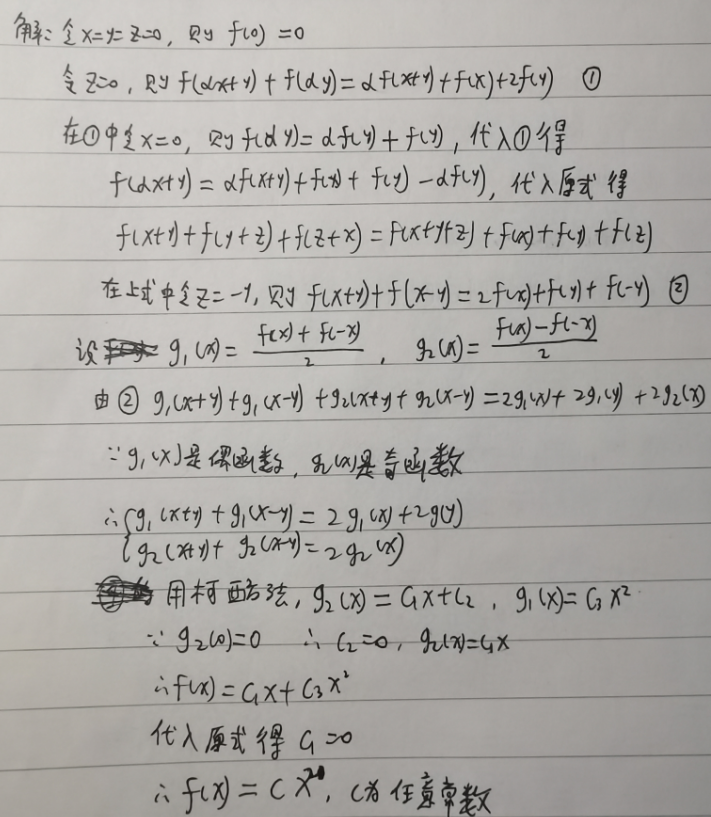 解：令x=y=z=0, 则 f(0)=0
令z=0, 则 f(αx+y)+f(αy)=αf(x+y)+f(x)+2f(y) ①
在①中令x=0, 则f(αy)=αf(y)+f(y), 代入①得
f(αx+y)=αf(x+y)+f(x)+f(y)-αf(y), 代入原式得
f(x+y)+f(y+z)+f(z+x)=f(x+y+z)+f(x)+f(y)+f(z)
在上式中令z=-y, 则 f(x+y)+f(x-y)=2f(x)+f(y)+f(-y) ②
设 g₁(x)=(f(x)+f(-x))/2, g₂(x)=(f(x)-f(-x))/2
由② g₁(x+y)+g₁(x-y)+g₂(x+y)+g₂(x-y)=2g₁(x)+2g₁(y)+2g₂(x)
∵g₁(x)是偶函数, g₂(x)是奇函数
∴{g₁(x+y)+g₁(x-y)=2g₁(x)+2g(y)
{g₂(x+y)+g₂(x-y)=2g₂(x)
用柯西方法, g₂(x)=C₁x+C₂, g₁(x)=C₃x²
∵g₂(0)=0 ∴C₂=0, g₂(x)=C₁x
∴f(x)=C₁x+C₃x²
代入原式得 C₁=0
∴f(x)=Cx², C为任意常数